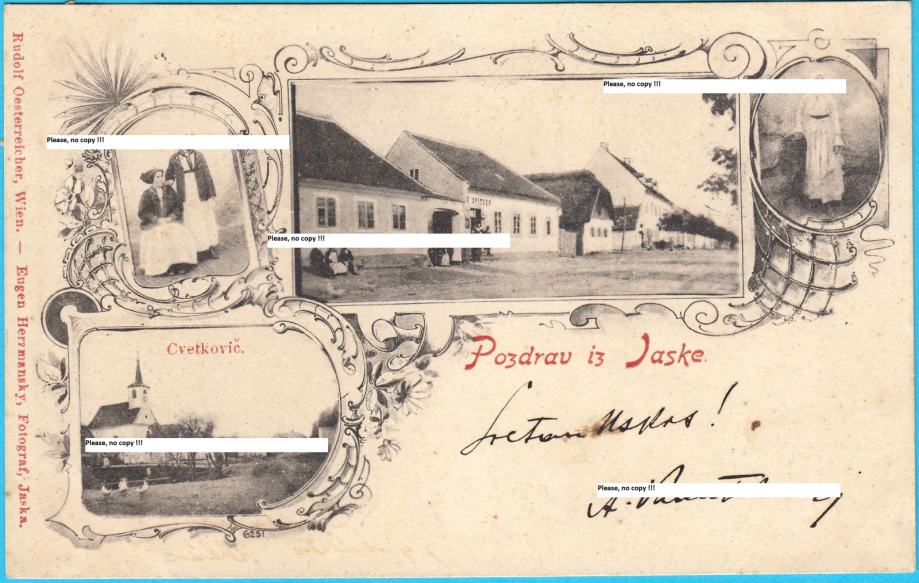 Rudolf Oesterreicher, Wien. — Eugen Herzmansky, Fotograf, Jaska.
Please, no copy !!!
Please, no copy !!!
Please, no copy !!!
Cvetkovič.
Pozdrav iz Jaske.
Sretan Uskrs!
Please, no copy !!!
Please, no copy !!!
A.
6251